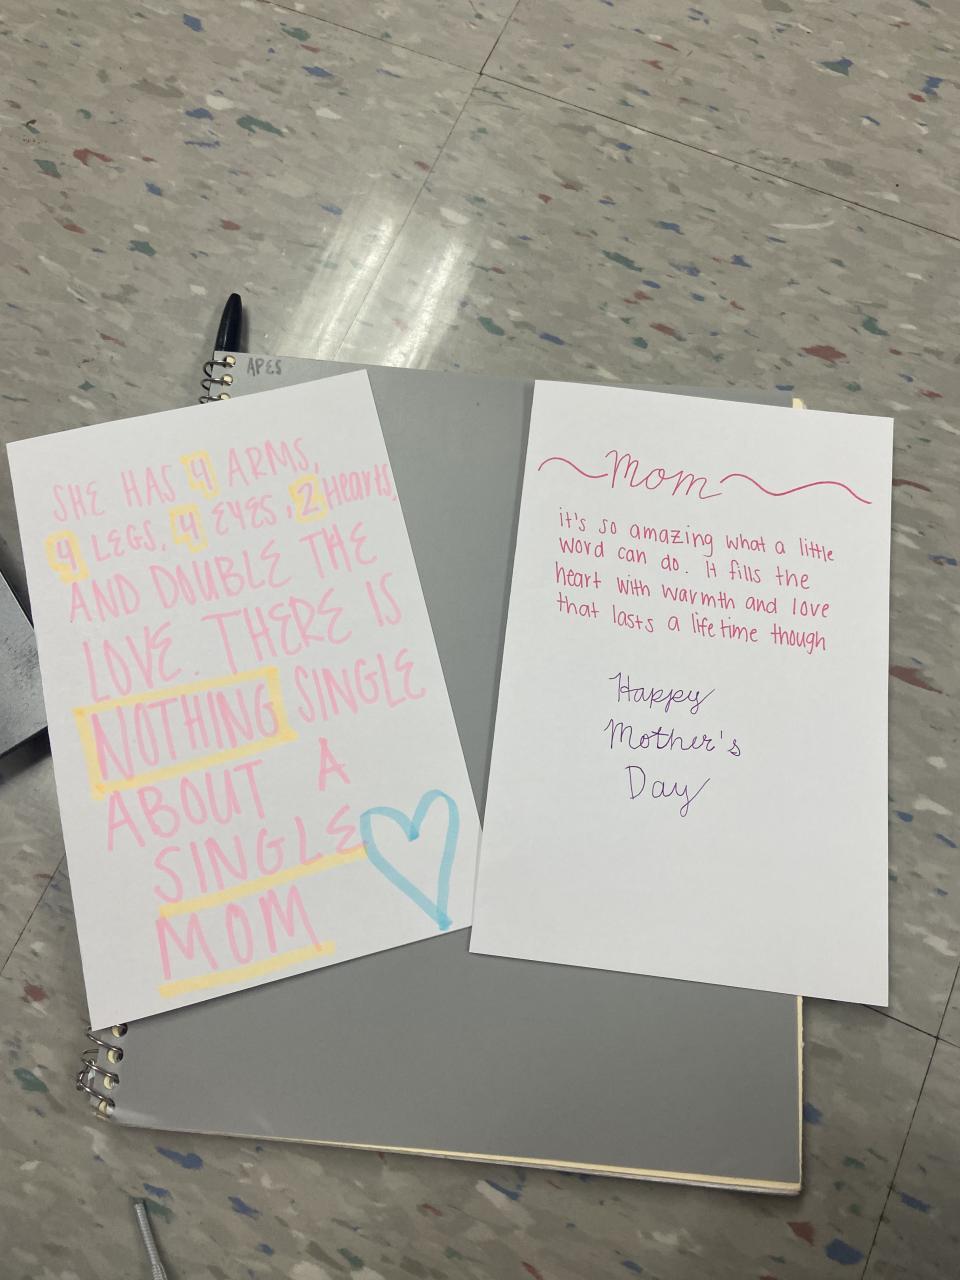 APES
SHE HAS 4 ARMS,
4 LEGS, 4 EYES, 2 Hearts,
AND DOUBLE THE
LOVE. THERE IS
NOTHING SINGLE
ABOUT A
SINGLE
MOM
Mom
it's so amazing what a little
word can do. It fills the
heart with warmth and love
that lasts a lifetime though
Happy
Mother's
Day